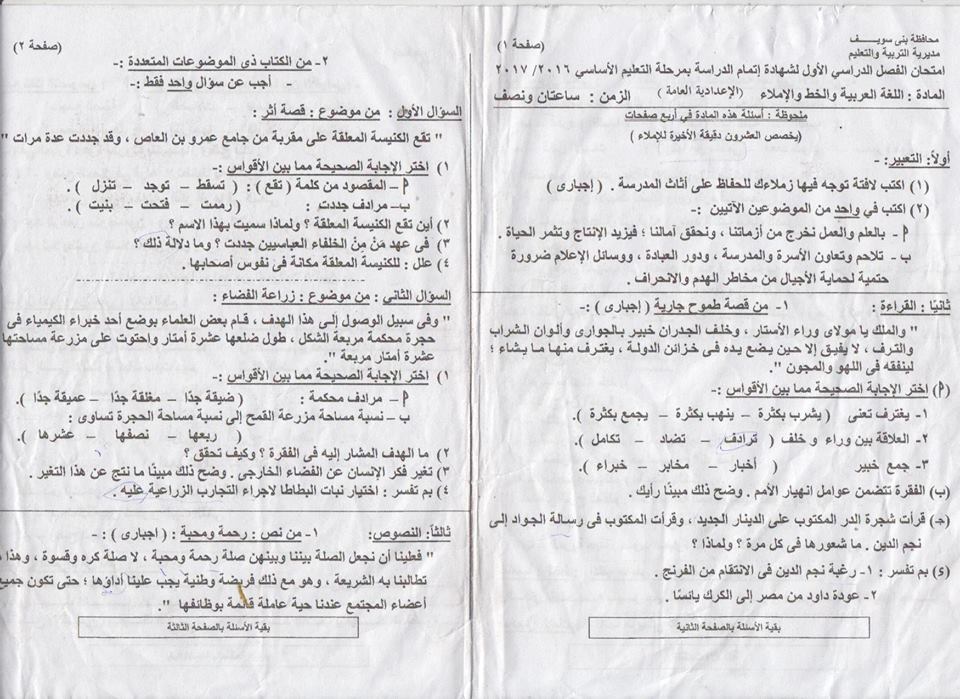 محافظة بنى سويـــف
مديرية التربية والتعليم
(صفحة ١)
امتحان الفصل الدراسي الأول لشهادة إتمام الدراسة بمرحلة التعليم الأساسي ٢٠١٦/ ٢٠١٧
المادة : اللغة العربية والخط والإملاء (الإعدادية العامة ) الزمن : ساعتان ونصف
ملحوظة : أسئلة هذه المادة في أربع صفحات
(يخصص العشرون دقيقة الأخيرة للإملاء )
أولاً: التعبير: -
(١) اكتب لافتة توجه فيها زملاءك للحفاظ على أثاث المدرسة . ( إجبارى )
(٢) اكتب في واحد من الموضوعين الآتيين :-
أ - بالعلم والعمل نخرج من أزماتنا ، ونحقق آمالنا ؛ فيزيد الإنتاج وتثمر الحياة .
ب - تلاحم وتعاون الأسرة والمدرسة ، ودور العبادة ، ووسائل الإعلام ضرورة
حتمية لحماية الأجيال من مخاطر الهدم والانحراف .
ثانيًا : القراءة : ١- من قصة طموح جارية ( إجبارى ) :-
" والملك يا مولاى وراء الأستار ، وخلف الجدران خبير بالجوارى وألوان الشراب
والترف ، لا يفيق إلا حين يضع يده فى خزائن الدولـة ، يغترف منهـا مـا يشاء ؛
لينفقه فى اللهو والمجون ".
(أ) اختر الإجابة الصحيحة مما بين الأقواس :-
١- يغترف تعنى ( يشرب بكثرة – ينهب بكثرة – يجمع بكثرة ) .
٢- العلاقة بين وراء و خلف ( ترادف – تضاد – تكامل ).
٣- جمع خبير ( أخبار – مخابر – خبراء ).
(ب) الفقرة تتضمن عوامل انهيار الأمم . وضح ذلك مبينًا رأيك .
(جـ) قرأت شجرة الدر المكتوب على الدينار الجديد ، وقرأت المكتوب فى رسالة الجواد إلى
نجم الدين . ما شعورها فى كل مرة ؟ ولماذا ؟
(د) بم تفسر : ١- رغبة نجم الدين فى الانتقام من الفرنج .
٢- عودة داود من مصر إلى الكرك يائسًا .
بقية الأسئلة بالصفحة الثانية
(صفحة ٢)
٢- من الكتاب ذى الموضوعات المتعددة :-
- أجب عن سؤال واحد فقط :-
السؤال الأول : من موضوع : قصة أثر :
" تقع الكنيسة المعلقة على مقربة من جامع عمرو بن العاص ، وقد جددت عدة مرات "
١) اختر الإجابة الصحيحة مما بين الأقواس :-
أ – المقصود من كلمة ( تقع ) : ( تسقط – توجد – تنزل ) .
ب– مرادف جددت : ( رممت – فتحت – بنيت ) .
٢) أين تقع الكنيسة المعلقة ؟ ولماذا سميت بهذا الاسم ؟
٣) فى عهد مَنْ مِنْ الخلفاء العباسيين جددت ؟ وما دلالة ذلك ؟
٤) علل : للكنيسة المعلقة مكانة فى نفوس أصحابها .
السؤال الثانى : من موضوع : زراعة الفضاء :
"وفى سبيل الوصول إلـى هذا الهدف ، قـام بعض العلماء بوضع أحد خبراء الكيمياء فى
حجرة محكمة مربعة الشكل ، طول ضلعها عشرة أمتار واحتوت على مزرعة مساحتها
عشرة أمتار مربعة ".
١) اختر الإجابة الصحيحة مما بين الأقواس :-
أ – مرادف محكمة : ( ضيقة جدًا – مغلقة جدًا – عميقة جدًا ).
ب – نسبة مساحة مزرعة القمح إلى نسبة مساحة الحجرة تساوى :
( ربعها – نصفها – عشرها ).
٢) ما الهدف المشار إليه فى الفقرة ؟ وكيف تحقق ؟
٣) تغير فكر الإنسان عن الفضاء الخارجى . وضح ذلك مبينًا ما نتج عن هذا التغير .
٤) بم تفسر : اختيار نبات البطاطا لاجراء التجارب الزراعية عليه .
ثالثًا: النصوص: ١- من نص : رحمة ومحبة : ( اجبارى ) : -
" فعلينا أن نجعل الصلة بيننا وبينهن صلة رحمة ومحبة ، لا صلة كره وقسوة ، وهذا ما
تطالبنا به الشريعة ، وهو مع ذلك فريضة وطنية يجب علينا أداؤها ؛ حتى تكون جميع
أعضاء المجتمع عندنا حية عاملة قائمة بوظائفها ".
بقية الأسئلة بالصفحة الثالثة